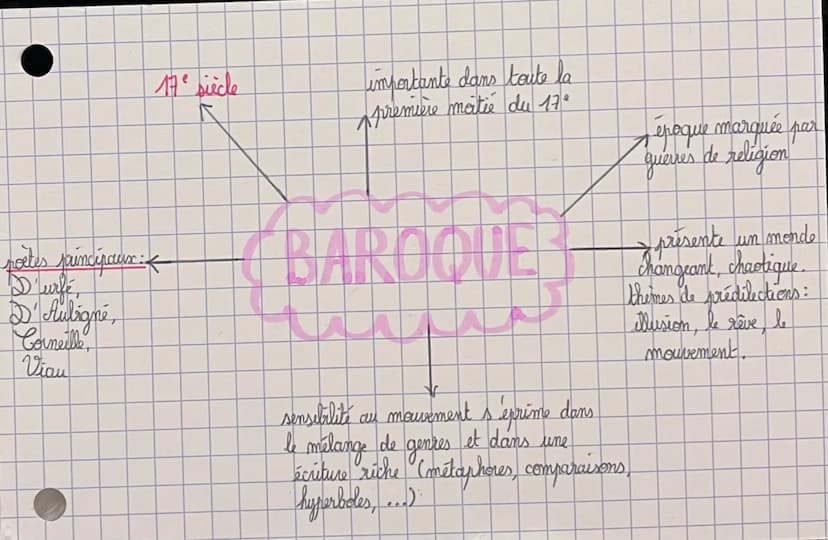 17e siècle
importante dans toute la
première moitié du 17e
époque marquée par
guerres de religion
BAROQUE
poètes principaux :
D'urfé
D'Aubigné,
Corneille,
Viau
présente un monde
changeant, chaotique.
thèmes de prédilections :
illusion, le rêve, le
mouvement.
sensibilité au mouvement s'éprime dans
le mélange de genres et dans une
écriture riche (métaphores, comparaisons,
hyperboles, ...)